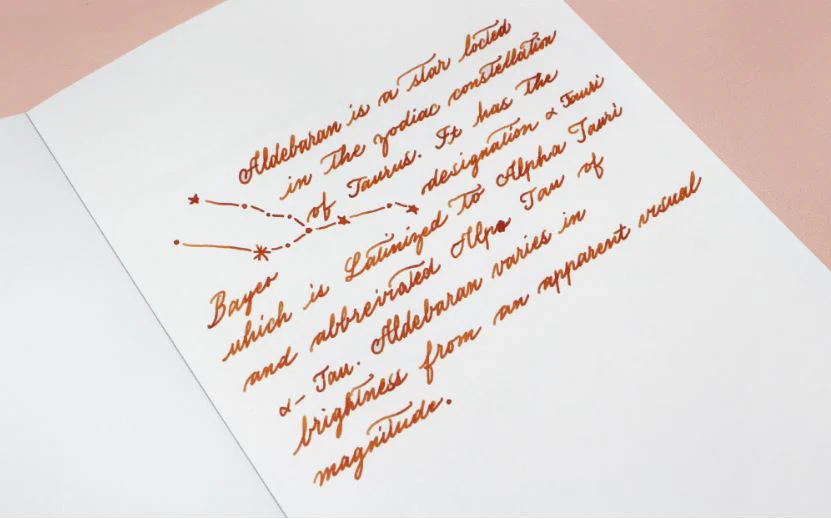 Aldebaran is a star locted
in the zodiac constellation
of Taurus. It has the
Bayer designation α Tauri
which is Latinized to Alpha Tauri
and abbreviated Alpa Tau of
α- Tau. Aldebaran varies in
brightness from an apparent visual
magnitude.